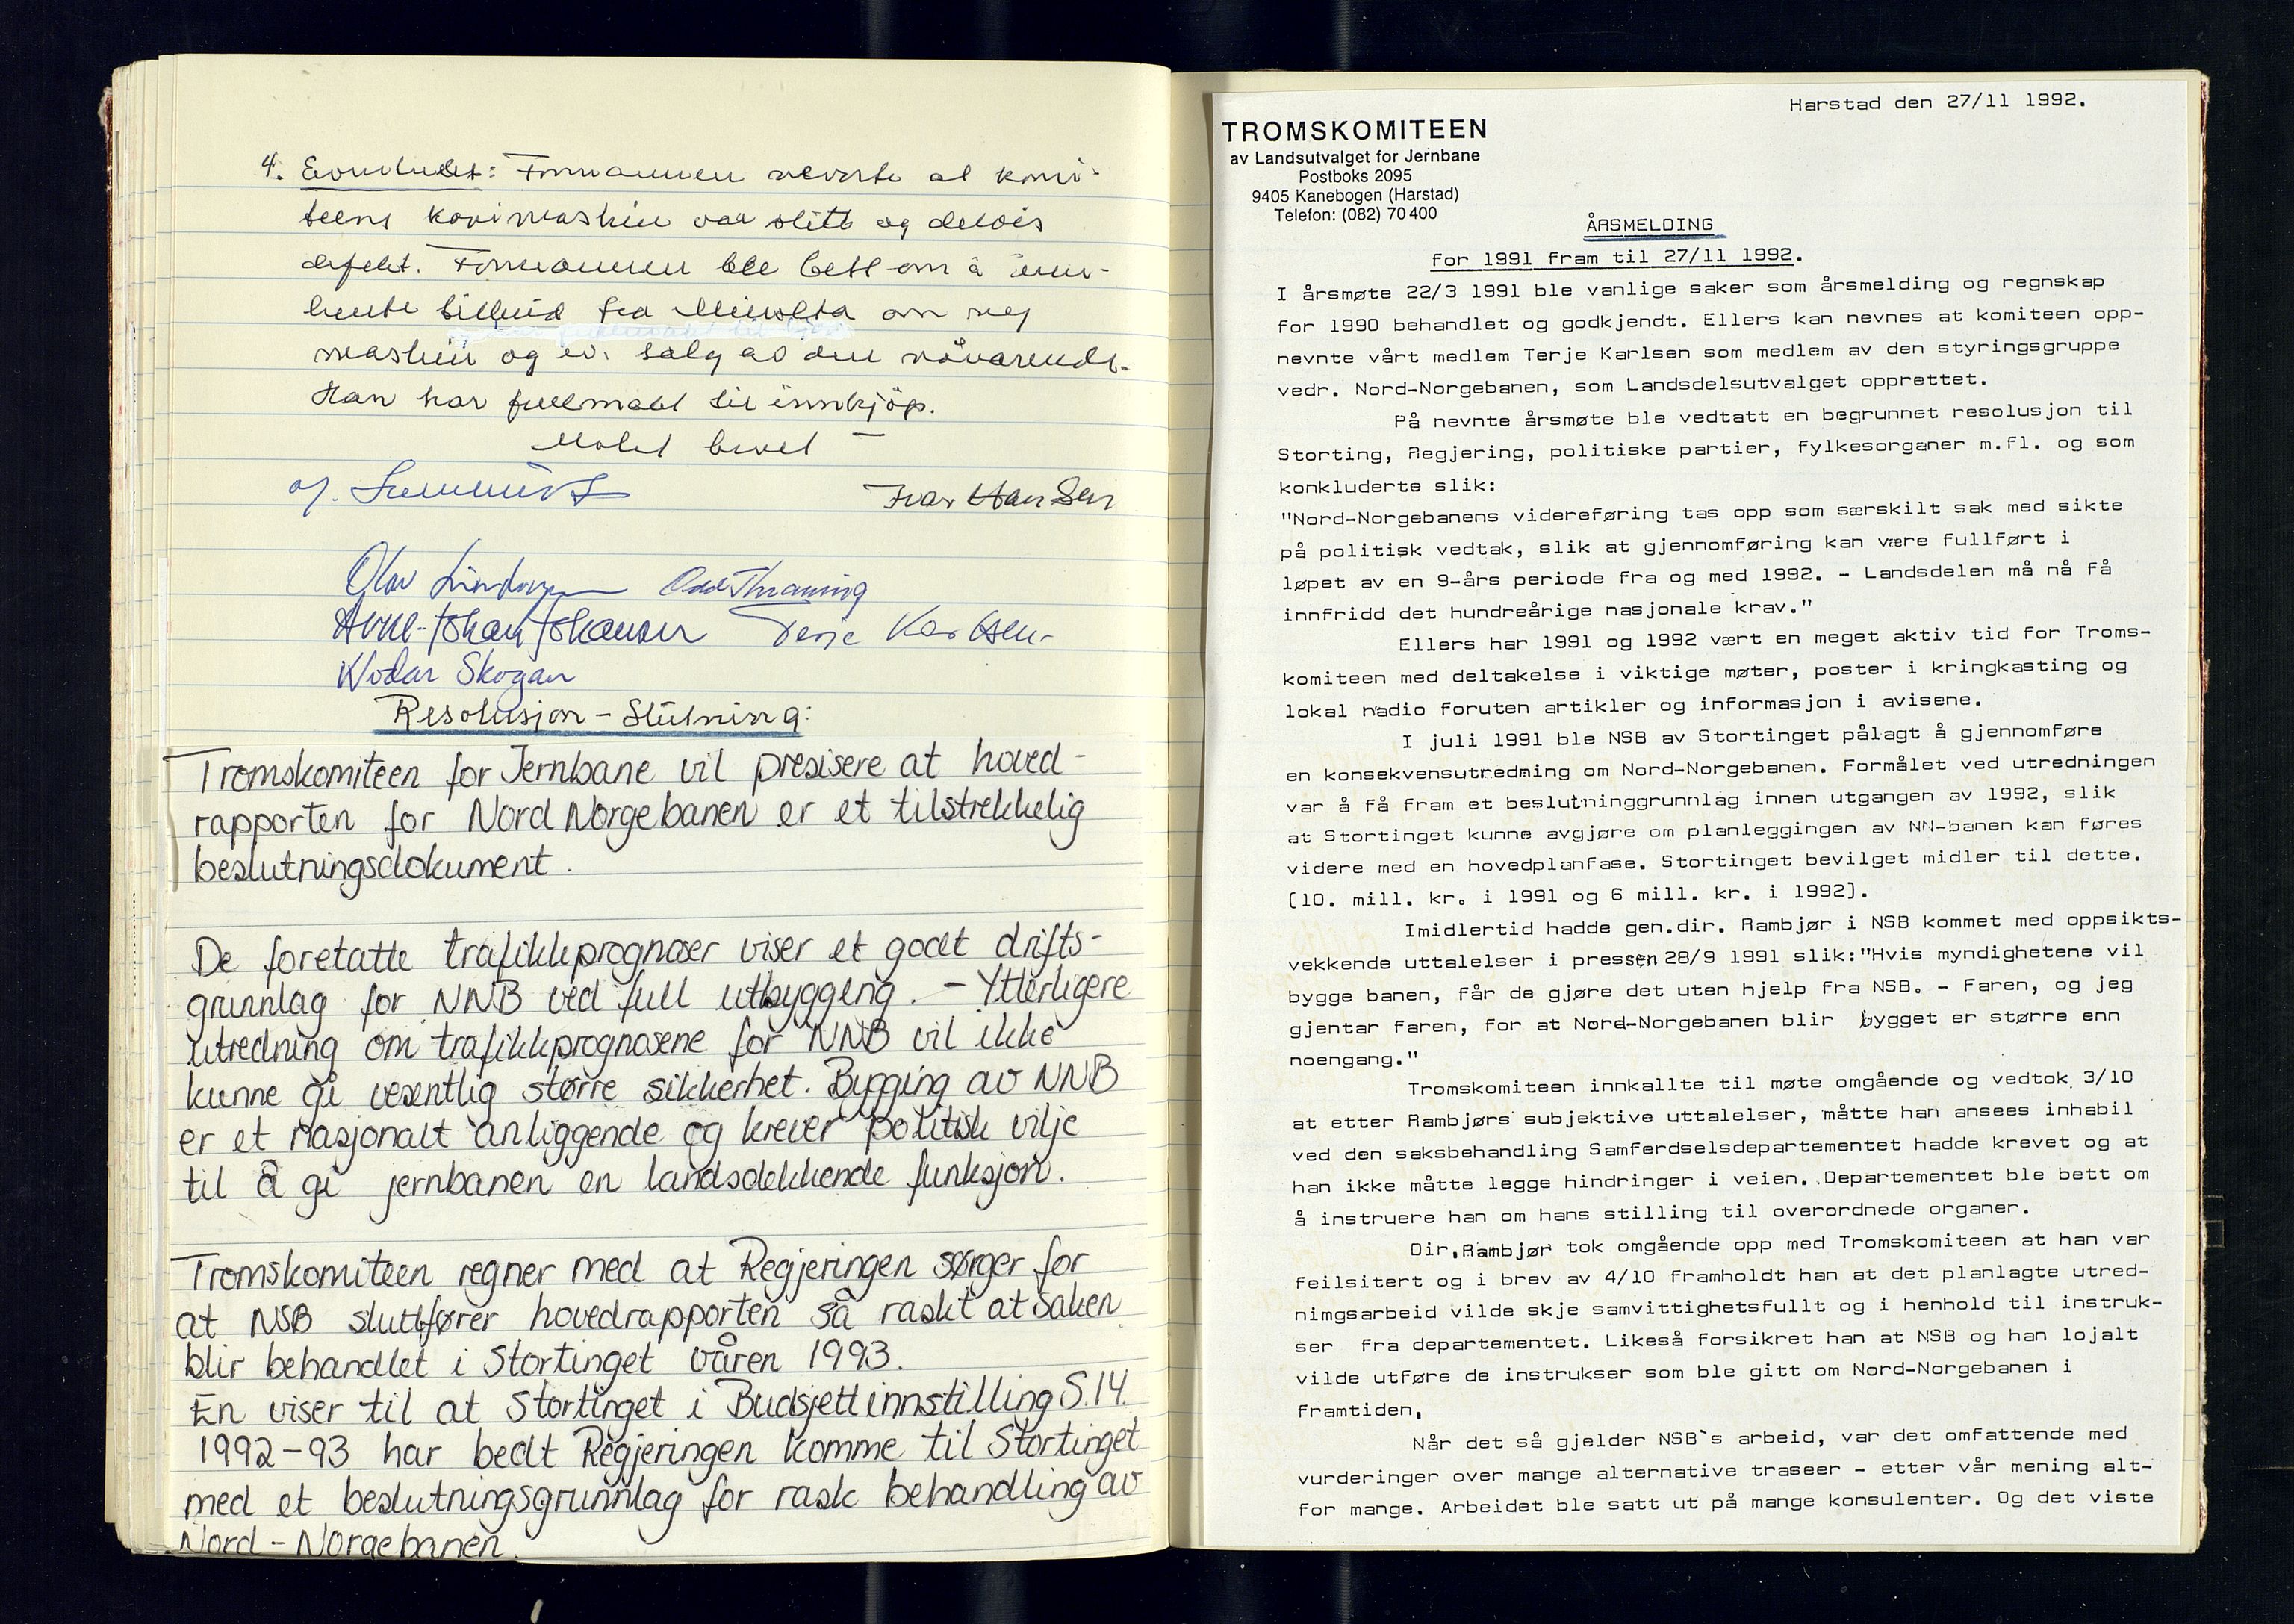 4. Eventuelt: Formannen nevnte at komi-
teens kopimaskin var slitt og delvis
defekt. Formannen ble bett om å inn-
hente tilbud fra Minolta om ny
maskin og ev. salg av den nåværende.
Han har fullmakt til innkjøp.
Møtet hevet —
Ivar Hansen
Olav Odd Thraning
Arne-Johan Johansen Terje Karlsen
Vidar Skogan
Resolusjon - Slutning:
Tromskomiteen for Jernbane vil presisere at hoved-
rapporten for Nord Norgebanen er et tilstrekkelig
beslutningsdokument.
De foretatte trafikkprognoser viser et godt drifts-
grunnlag for NNB ved full utbygging. - Ytterligere
utredning om trafikkprognosene for NNB vil ikke
kunne gi vesentlig større sikkerhet. Bygging av NNB
er et nasjonalt anliggende og krever politisk vilje
til å gi jernbanen en landsdekkende funksjon.
Tromskomiteen regner med at Regjeringen sørger for
at NSB sluttfører hovedrapporten så raskt at saken
blir behandlet i Stortinget våren 1993.
En viser til at Stortinget i Budsjettinnstilling S.14.
1992-93 har bedt Regjeringen komme til Stortinget
med et beslutningsgrunnlag for rask behandling av
Nord - Norgebanen.
Harstad den 27/11 1992.
TROMSKOMITEEN
av Landsutvalget for Jernbane
Postboks 2095
9405 Kanebogen (Harstad)
Telefon: (082) 70 400
ÅRSMELDING
for 1991 fram til 27/11 1992.
I årsmøte 22/3 1991 ble vanlige saker som årsmelding og regnskap
for 1990 behandlet og godkjendt. Ellers kan nevnes at komiteen opp-
nevnte vårt medlem Terje Karlsen som medlem av den styringsgruppe
vedr. Nord-Norgebanen, som Landsdelsutvalget opprettet.
På nevnte årsmøte ble vedtatt en begrunnet resolusjon til
Storting, Regjering, politiske partier, fylkesorganer m.fl. og som
konkluderte slik:
"Nord-Norgebanens videreføring tas opp som særskilt sak med sikte
på politisk vedtak, slik at gjennomføring kan være fullført i
løpet av en 9-års periode fra og med 1992. - Landsdelen må nå få
innfridd det hundreårige nasjonale krav."
Ellers har 1991 og 1992 vært en meget aktiv tid for Troms-
komiteen med deltakelse i viktige møter, poster i kringkasting og
lokal radio foruten artikler og informasjon i avisene.
I juli 1991 ble NSB av Stortinget pålagt å gjennomføre
en konsekvensutredning om Nord-Norgebanen. Formålet ved utredningen
var å få fram et beslutninggrunnlag innen utgangen av 1992, slik
at Stortinget kunne avgjøre om planleggingen av NN-banen kan føres
videre med en hovedplanfase. Stortinget bevilget midler til dette.
(10. mill. kr. i 1991 og 6 mill. kr. i 1992).
Imidlertid hadde gen.dir. Rambjør i NSB kommet med oppsikts-
vekkende uttalelser i pressen 28/9 1991 slik:"Hvis myndighetene vil
bygge banen, får de gjøre det uten hjelp fra NSB. - Faren, og jeg
gjentar faren, for at Nord-Norgebanen blir bygget er større enn
noengang."
Tromskomiteen innkallte til møte omgående og vedtok 3/10
at etter Rambjørs subjektive uttalelser, måtte han ansees inhabil
ved den saksbehandling Samferdselsdepartementet hadde krevet og at
han ikke måtte legge hindringer i veien. Departementet ble bett om
å instruere han om hans stilling til overordnede organer.
Dir. Rambjør tok omgående opp med Tromskomiteen at han var
feilsitert og i brev av 4/10 framholdt han at det planlagte utred-
nimgsarbeid vilde skje samvittighetsfullt og i henhold til instruk-
ser fra departementet. Likeså forsikret han at NSB og han lojalt
vilde utføre de instrukser som ble gitt om Nord-Norgebanen i
framtiden,
Når det så gjelder NSB`s arbeid, var det omfattende med
vurderinger over mange alternative traseer - etter vår mening alt-
for mange. Arbeidet ble satt ut på mange konsulenter. Og det viste